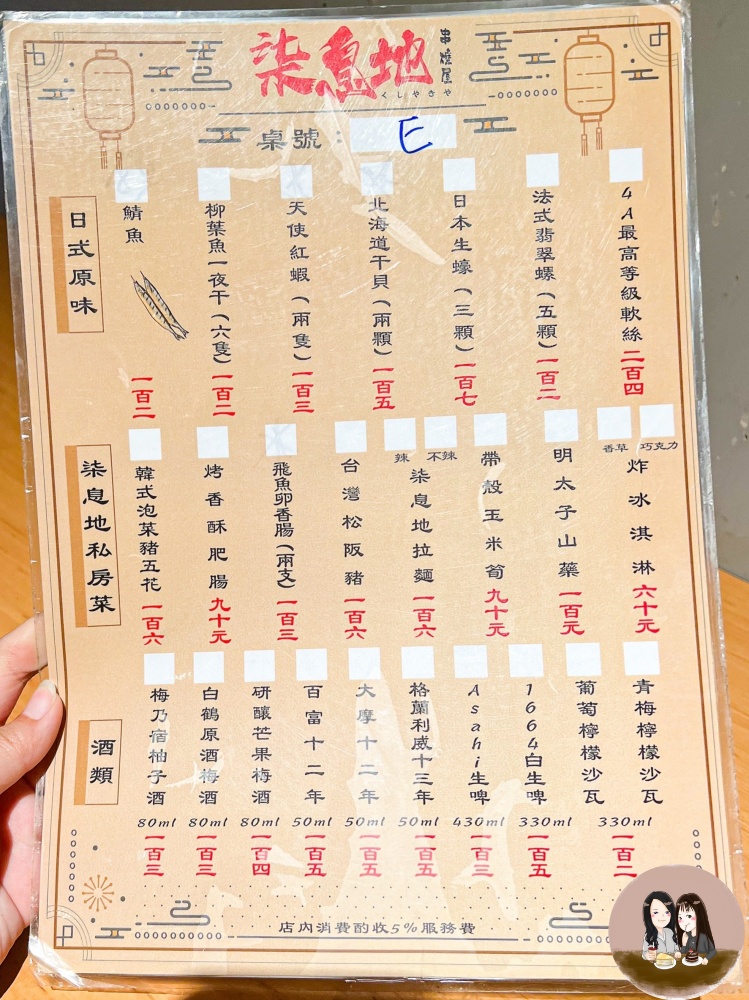 柒息地
串燒屋
くしやきや
桌號：E
日式原味
4A最高等級軟絲 二百四
法式翡翠螺（五顆） 一百二
日本生蠔（三顆） 一百七
北海道干貝（兩顆） 一百五
天使紅蝦（兩隻） 一百三
柳葉魚一夜干（六隻） 一百二
鯖魚 一百二
柒息地私房菜
香草 巧克力
炸冰淇淋 六十元
明太子山藥 一百元
帶殼玉米筍 九十元
辣 不辣
柒息地拉麵 一百六
台灣松阪豬 一百六
飛魚卵香腸（兩支） 一百三
烤香酥肥腸 九十元
韓式泡菜豬五花 一百六
酒類
青梅檸檬沙瓦
葡萄檸檬沙瓦
330ml 一百二
1664白生啤 330ml 一百五
Asahi生啤 430ml 一百三
格蘭利威十三年 50ml 一百五
大摩十二年 50ml 一百五
百富十二年 50ml 一百五
研釀芒果梅酒 80ml 一百四
白鶴原酒梅酒 80ml 一百三
梅乃宿柚子酒 80ml 一百三
店內消費酌收5%服務費